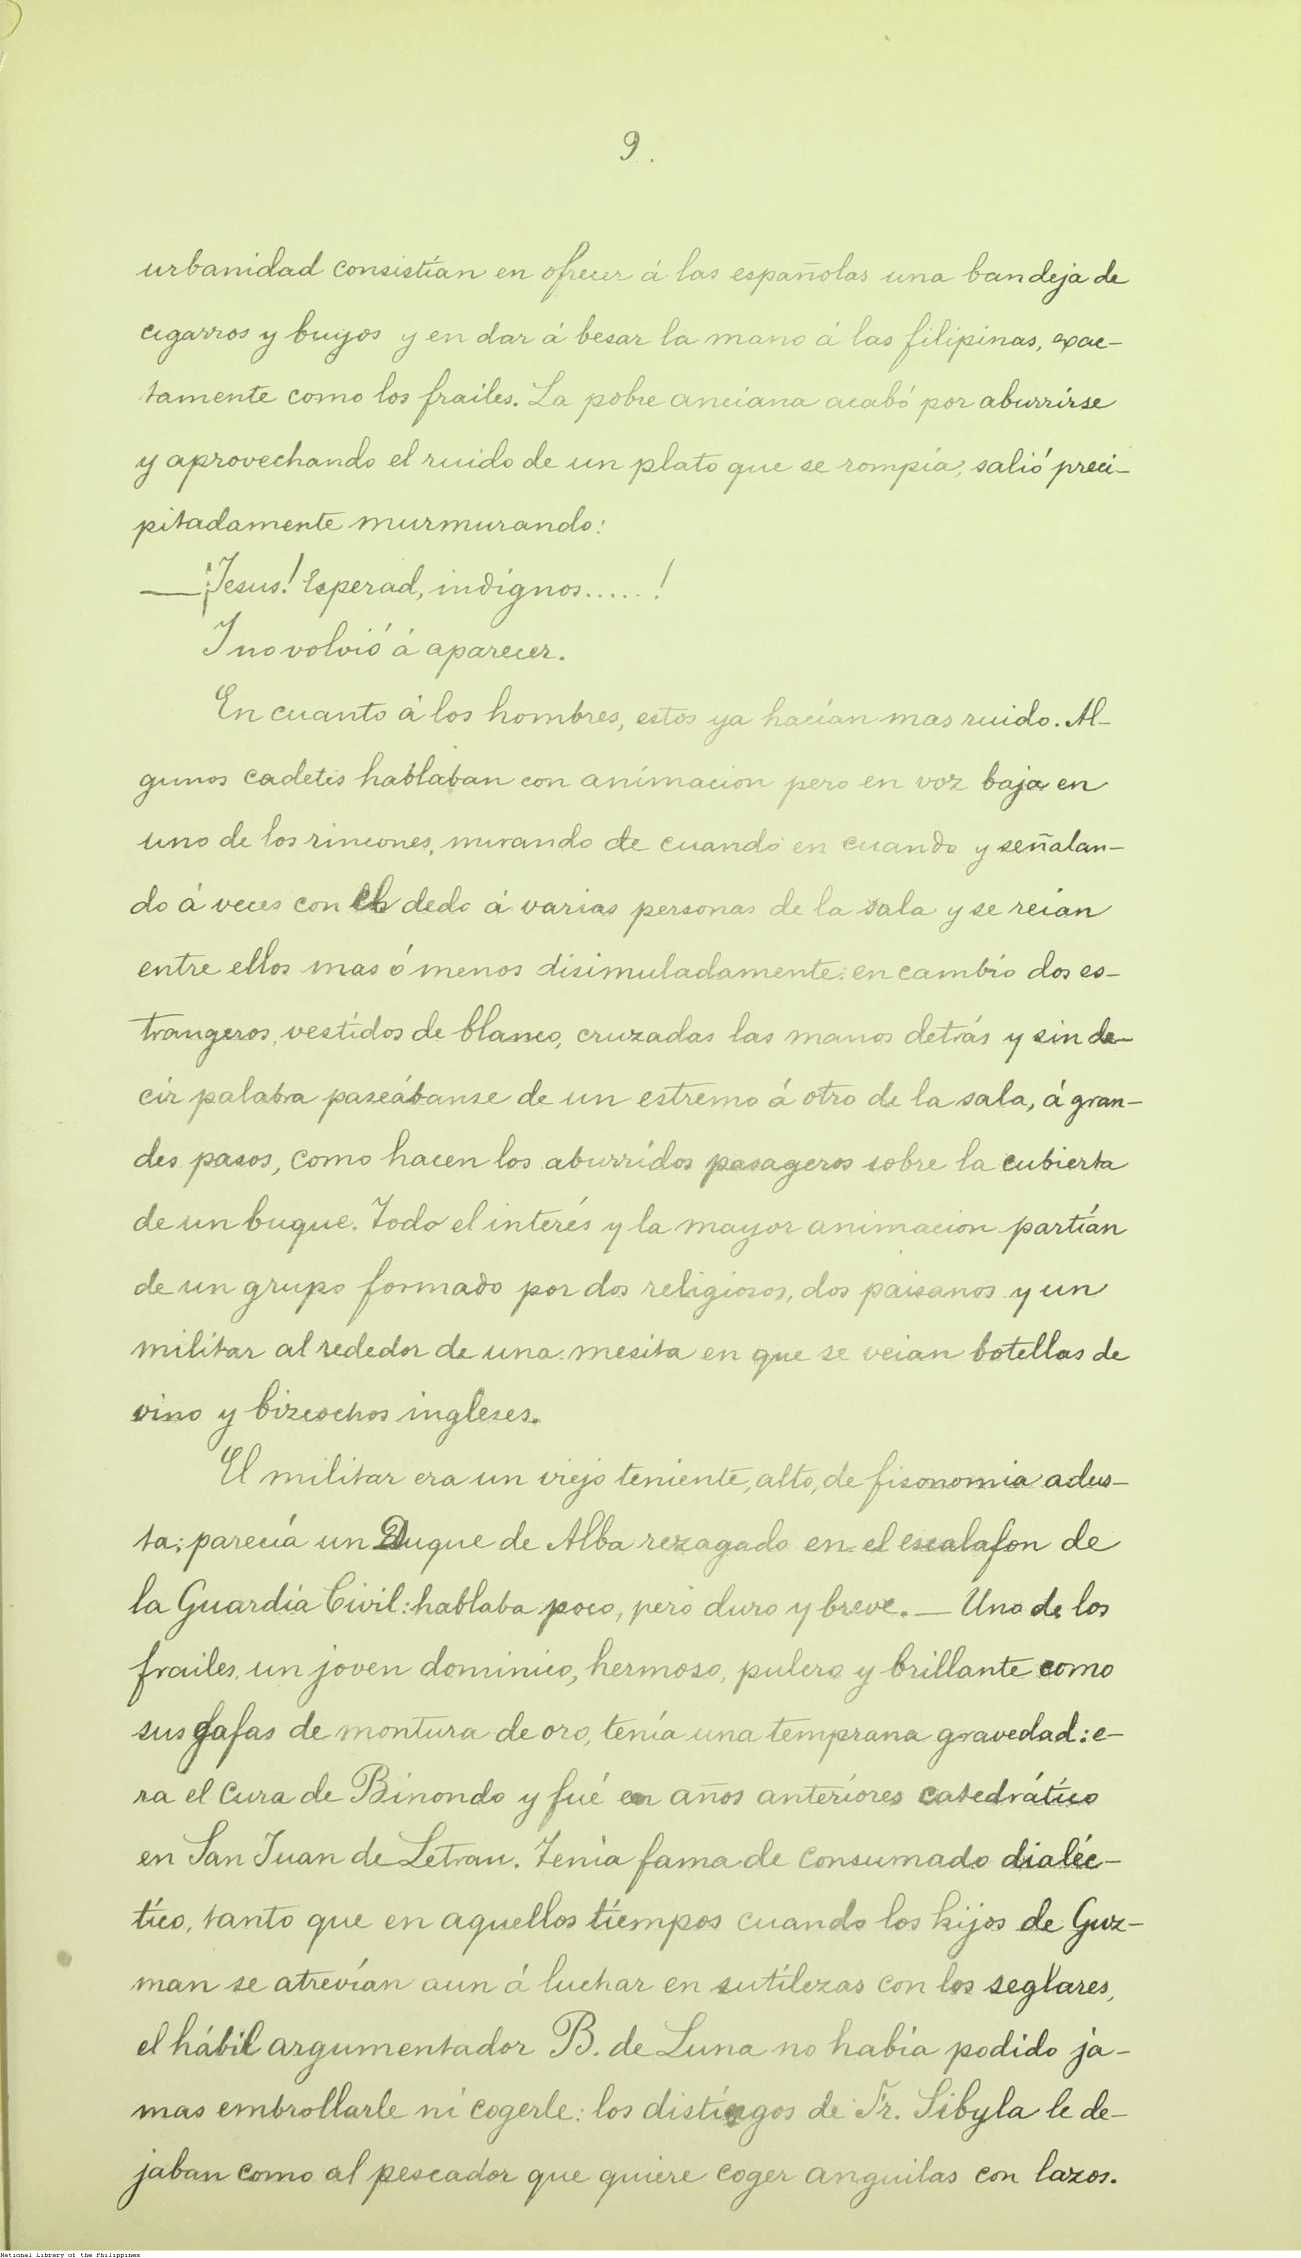 9.
urbanidad consistían en ofrecer á las españolas una bandeja de
cigarros y buyos y en dar á besar la mano á las filipinas, exac-
tamente como los frailes. La pobre anciana acabó por aburrirse
y aprovechando el ruido de un plato que se rompía, salió preci-
pitadamente murmurando:
—¡Jesus! Esperad, indignos......!
Y no volvió á aparecer.
En cuanto á los hombres, estos ya hacían mas ruido. Al-
gunos cadetes hablaban con animacion pero en voz baja en
uno de los rincones, mirando de cuando en cuando y señalan-
do á veces con el dedo á varias personas de la sala y se reían
entre ellos mas ó menos disimuladamente: en cambio dos es-
trangeros, vestidos de blanco, cruzadas las manos detrás y sin de-
cir palabra paseábanse de un estremo á otro de la sala, á gran-
des pasos, como hacen los aburridos pasageros sobre la cubierta
de un buque. Todo el interés y la mayor animacion partían
de un grupo formado por dos religiosos, dos paisanos y un
militar al rededor de una mesita en que se veian botellas de
vino y bizcochos ingleses.
El militar era un viejo teniente, alto, de fisonomia adus-
ta; parecía un Duque de Alba rezagado en el escalafon de
la Guardia Civil: hablaba poco, pero duro y breve. — Uno de los
frailes, un joven dominico, hermoso, pulcro y brillante como
sus gafas de montura de oro, tenía una temprana gravedad: e-
ra el cura de Binondo y fué en años anteriores catedrático
en San Juan de Letran. Tenía fama de consumado dialéc-
tico, tanto que en aquellos tiempos cuando los hijos de Guz-
man se atrevían aun á luchar en sutilezas con los seglares,
el hábil argumentador B. de Luna no habia podido ja-
mas embrollarle ni cogerle: los distingos de Fr. Sibyla le de-
jaban como al pescador que quiere coger anguilas con lazos.
National Library of the Philippines